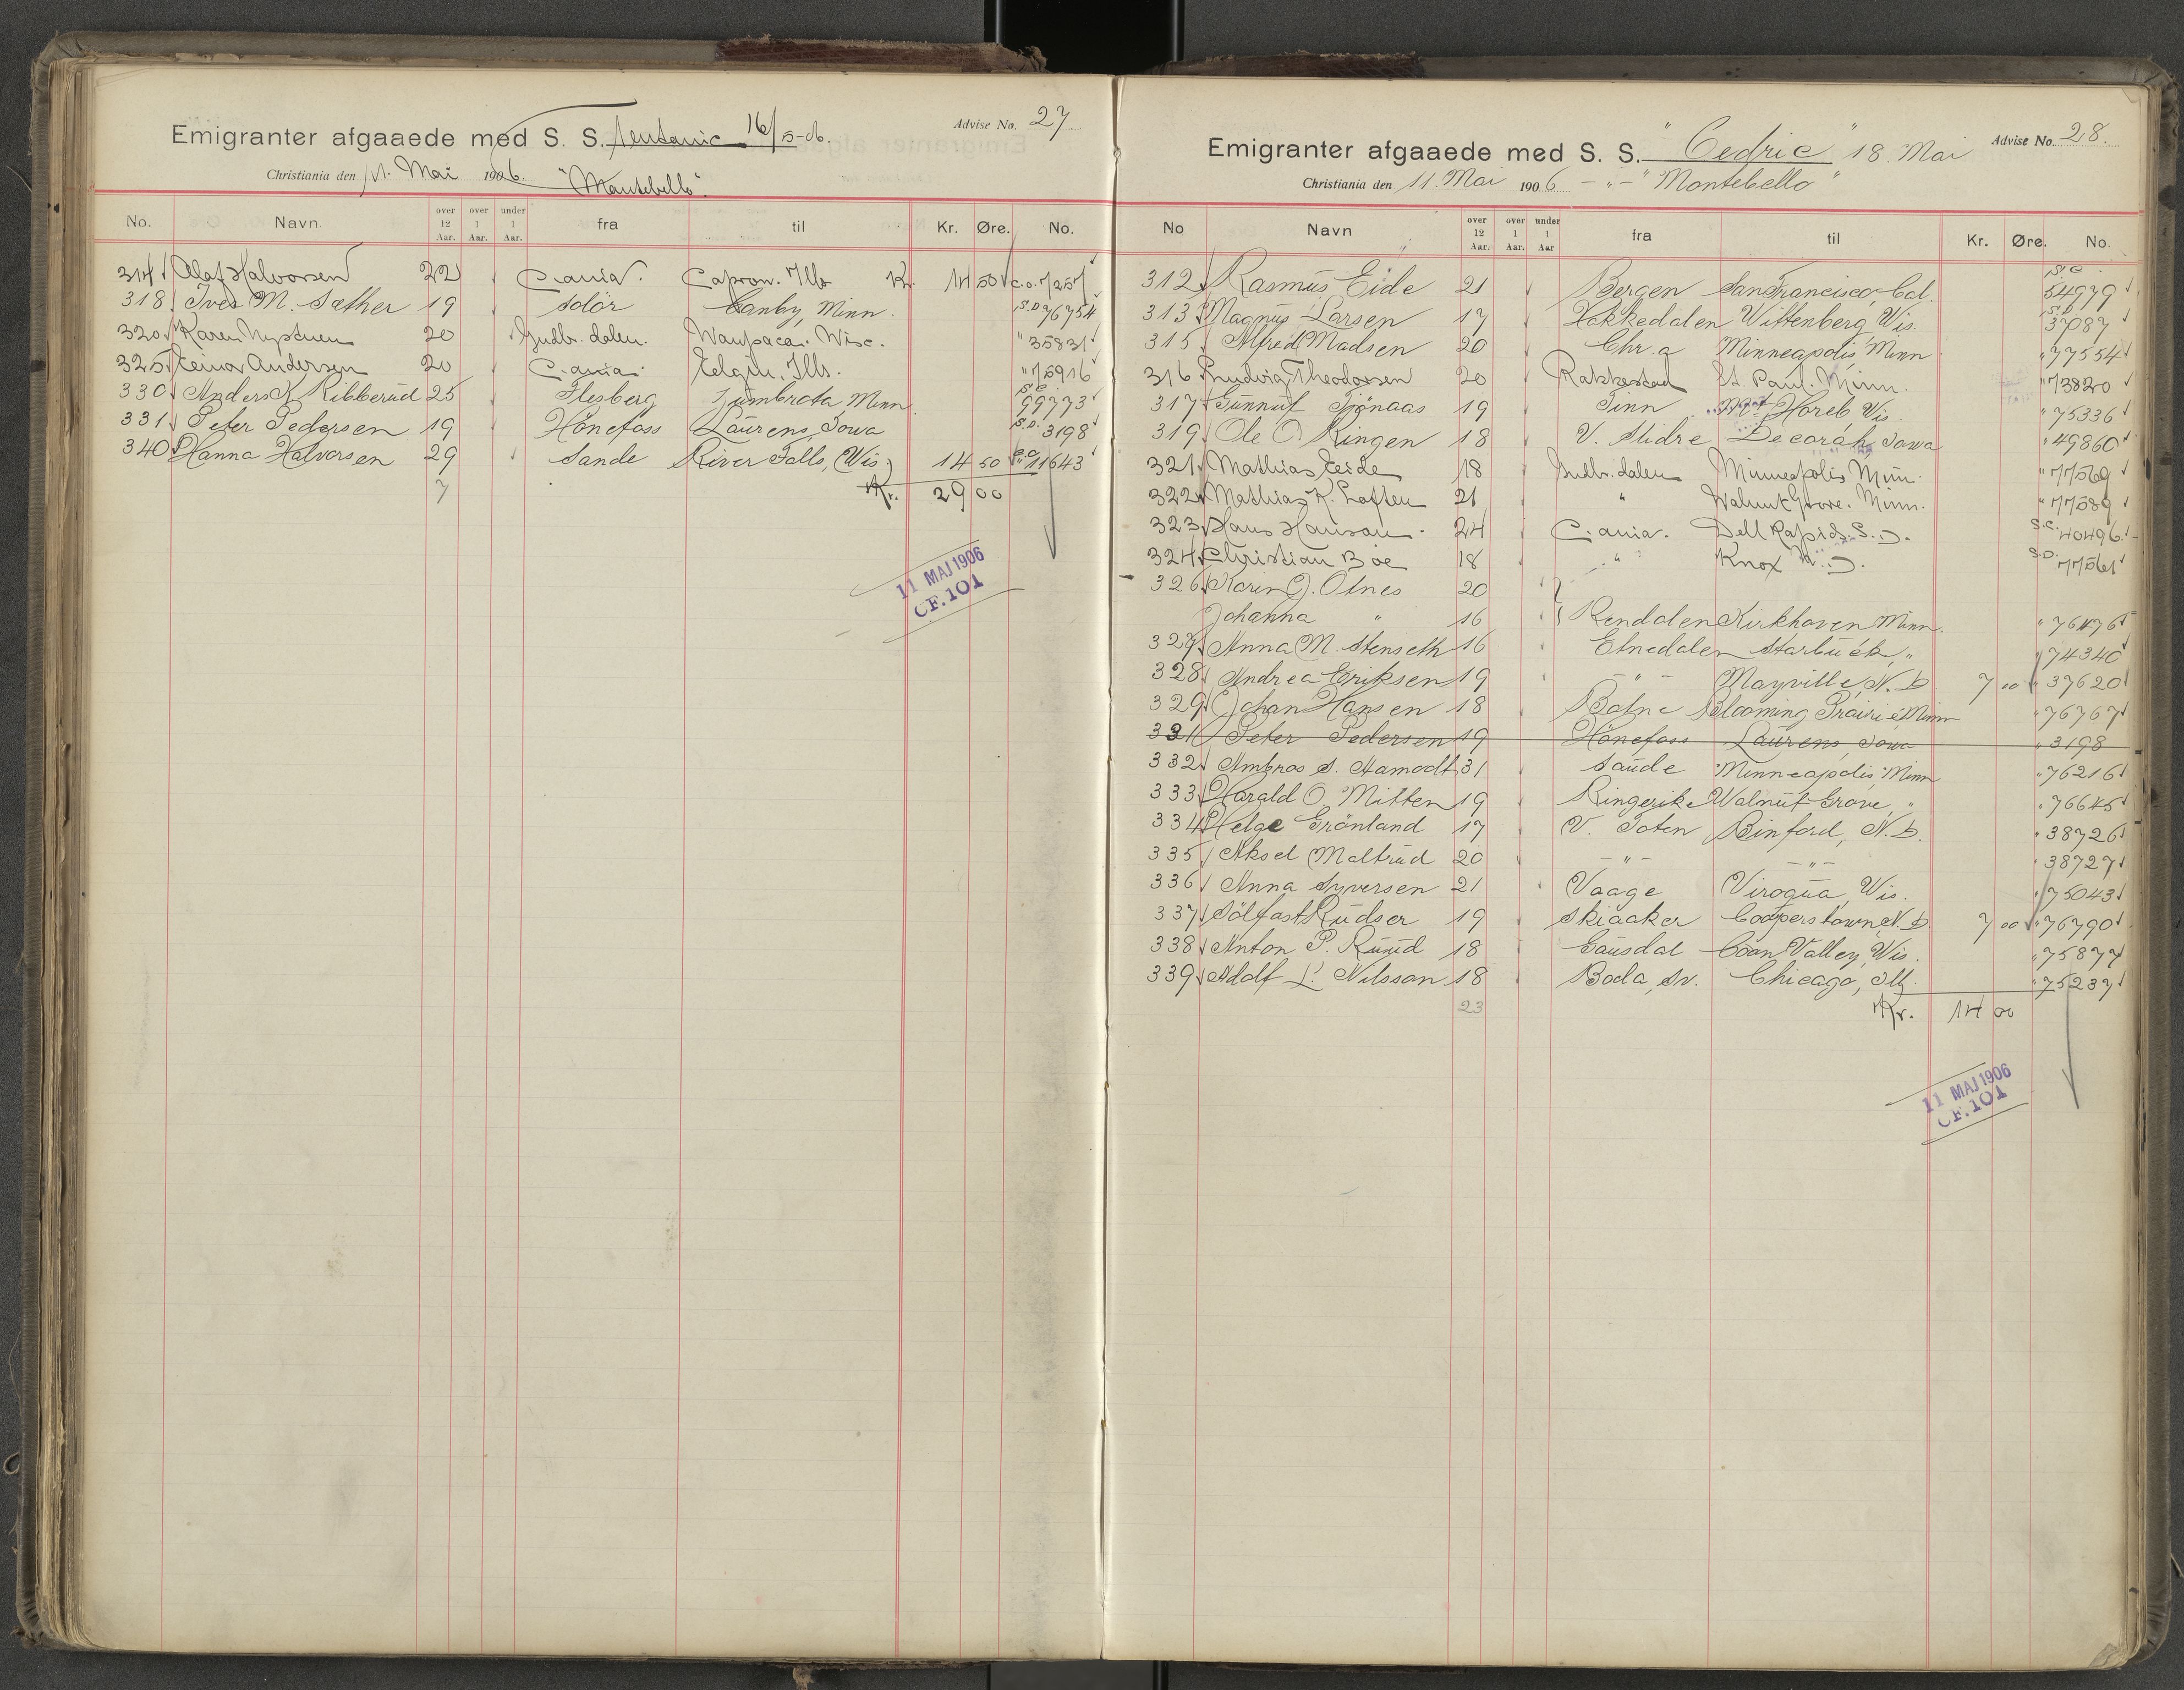 Emigranter afgaaede med S. S. Teutonic 16/5-06. Advise No. 27
Christiania den 11. Mai 1906. "Montebello".
No. Navn over 12 Aar. over 1 Aar. under 1 Aar. fra til Kr. Øre. No.
314 Olaf Halvorsen 22 C.ania. Capron. Ills 14 50 C.O. 7257
318 Iver M. Sæther 19 Solör Canby, Minn. S.D. 76754
320 Karen Nystuen 20 Gudbr. dalen. Waupaca. Wisc. " 35831
325 Einar Andersen 20 C.ania. Elgin. Ills. " 75916
330 Anders K. Ribberud 25 Flesberg Zumbrota Minn. S.C. 99773
331 Peter Pedersen 19 Hönefoss Laurens, Iowa S.D. 3198
340 Hanna Halvorsen 29 Sande River Falls, Wis. 14 50 C.O. 11643
7 Kr. 29 00
11 MAJ 1906
CF. 101
Emigranter afgaaede med S. S. "Cedric" 18. Mai Advise No. 28.
Christiania den 11. Mai 1906 -"- "Montebello"
No Navn over 12 Aar. over 1 Aar. under 1 Aar fra til Kr. Øre. No.
312 Rasmus Eide 21 Bergen San Francisco, Cal. S.C. 54979
313 Magnus Larsen 17 Hakkedalen Wittenberg, Wis. S.D. 37087
315 Alfred Madsen 20 Chr.a Minneapolis, Minn " 77554
316 Ludvig Theodorsen 20 Rakkestad St. Paul. Minn. " 73820
317 Gunnuf Tjönaas 19 Tinn Mt Horeb, Wis. " 75336
319 Ole O. Ringen 18 V. Slidre Decorah, Iowa " 49860
321 Mathias Eide 18 Gudbr. dalen Minneapolis, Minn. " 77569
322 Mathias K. Loften 21 " Walnut Grove. Minn. " 77589
323 Hans Hansen. 24 C.ania. Dell Rapids. S.D. S.C. 40496
324 Christian Böe 18 " Knox N.D. S.D. 77561
326 Karin J. Olnes 20
Johanna " 16 Rendalen Kirkhoven Minn. " 76476
327 Anna M. Stenseth 16 Etnedalen Starbuck, " " 74340
328 Andrea Eriksen 19 -"- Mayville, N.D. 7 00 " 37620
329 Johan Hansen 18 Botne Blooming Prairie, Minn " 76767
331 Peter Pedersen 19 Hönefoss Laurens, Iowa " 3198
332 Ambros S. Aamodt 31 Saude Minneapolis, Minn " 76216
333 Harald O. Mitten 19 Ringerike Walnut Grove " " 76645
334 Helge Grönland 17 V. Toten Binford, N.D. " 38726
335 Aksel Maltrud 20 -"- -"- " 38727
336 Anna Syversen 21 Vaage Viroqua, Wis. " 75043
337 Sölfast Rudser 19 Skiaaker Cooperstown, N.D. 7 00 " 76790
338 Anton P. Ruud 18 Gausdal Coon Valley, Wis. " 75877
339 Adolf L. Nilsson 18 Boda, Sv. Chicago, Ill. " 75237
23 Kr. 14 00
11 MAJ 1906
CF. 101